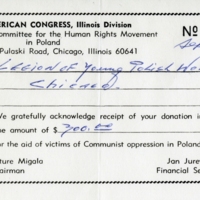 ERICAN CONGRESS, Illinois Division
Committee for the Human Rights Movement
in Poland
Pulaski Road, Chicago, Illinois 60641
No
Legion of Young Polish
Chicago.
We gratefully acknowledge receipt of your donation in
e amount of $ 200.00
or the aid of victims of Communist oppression in Poland.
ture Migala
Jan Jure
airman
Financial Se